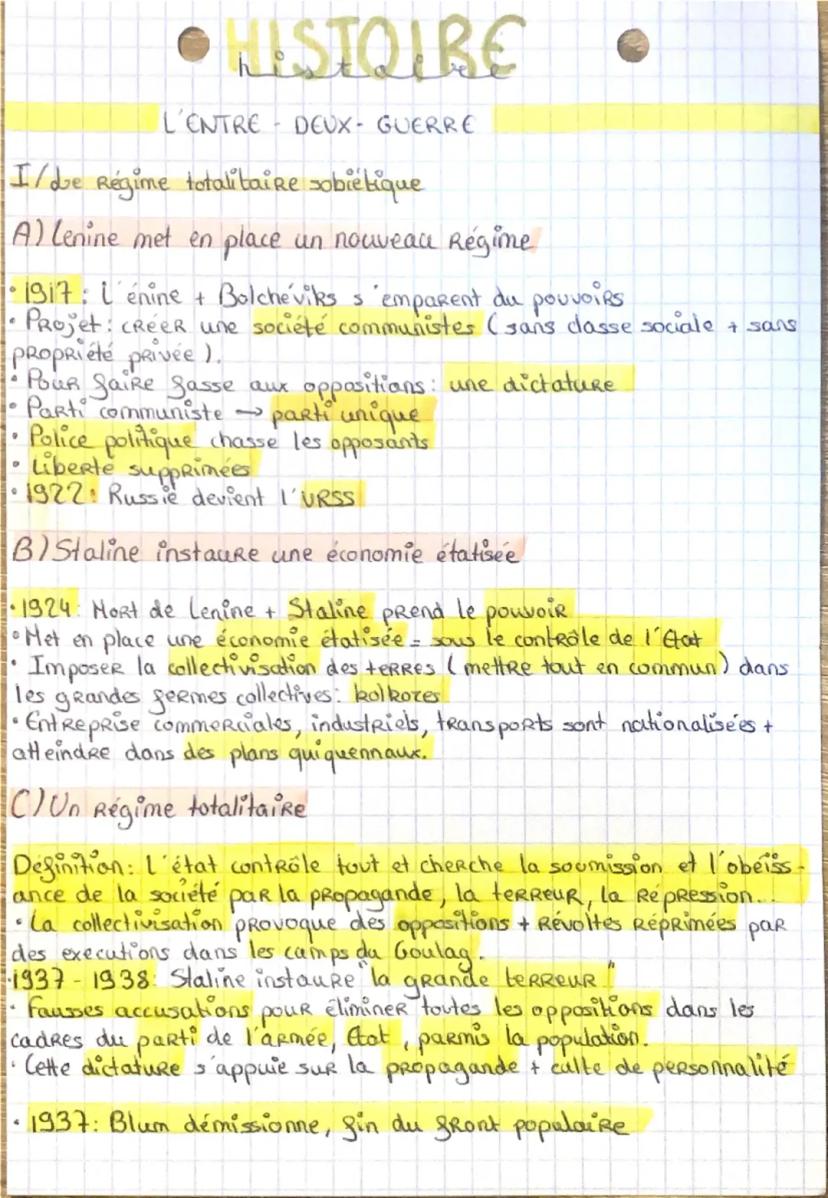 HISTOIRE
histoire
L'ENTRE - DEUX - GUERRE
I/ Le Régime totalitaire sobiétique
A) Lenine met en place un nouveau Régime
• 1917 : L'énine + Bolchéviks s'emparent du pouvoirs
• Projet : créer une société communistes (sans classe sociale + sans
propriété privée).
• Pour faire fasse aux oppositions : une dictature
• Parti communiste → parti unique
• Police politique chasse les opposants
• Liberté supprimées
• 1922 : Russie devient l'URSS
B) Staline instaure une économie étatisée
• 1924 : Mort de Lenine + Staline prend le pouvoir
• Met en place une économie étatisée = sous le contrôle de l'Etat
• Imposer la collectivisation des terres (mettre tout en commun) dans
les grandes fermes collectives : kolkozes
• Entreprise commerciales, industriels, transports sont nationalisées +
atteindre dans des plans quiquennaux.
C) Un Régime totalitaire
Définition : l'état contrôle tout et cherche la soumission et l'obéiss-
ance de la société par la propagande, la terreur, la répression...
• La collectivisation provoque des oppositions + Révoltes réprimées par
des executions dans les camps du Goulag.
•1937 - 1938 : Staline instaure "la grande terreur"
• Fausses accusations pour éliminer toutes les oppositions dans les
cadres du parti de l'armée, Etat, parmis la population.
• Cette dictature s'appuie sur la propagande + culte de personnalité
• 1937 : Blum démissionne, fin du front populaire